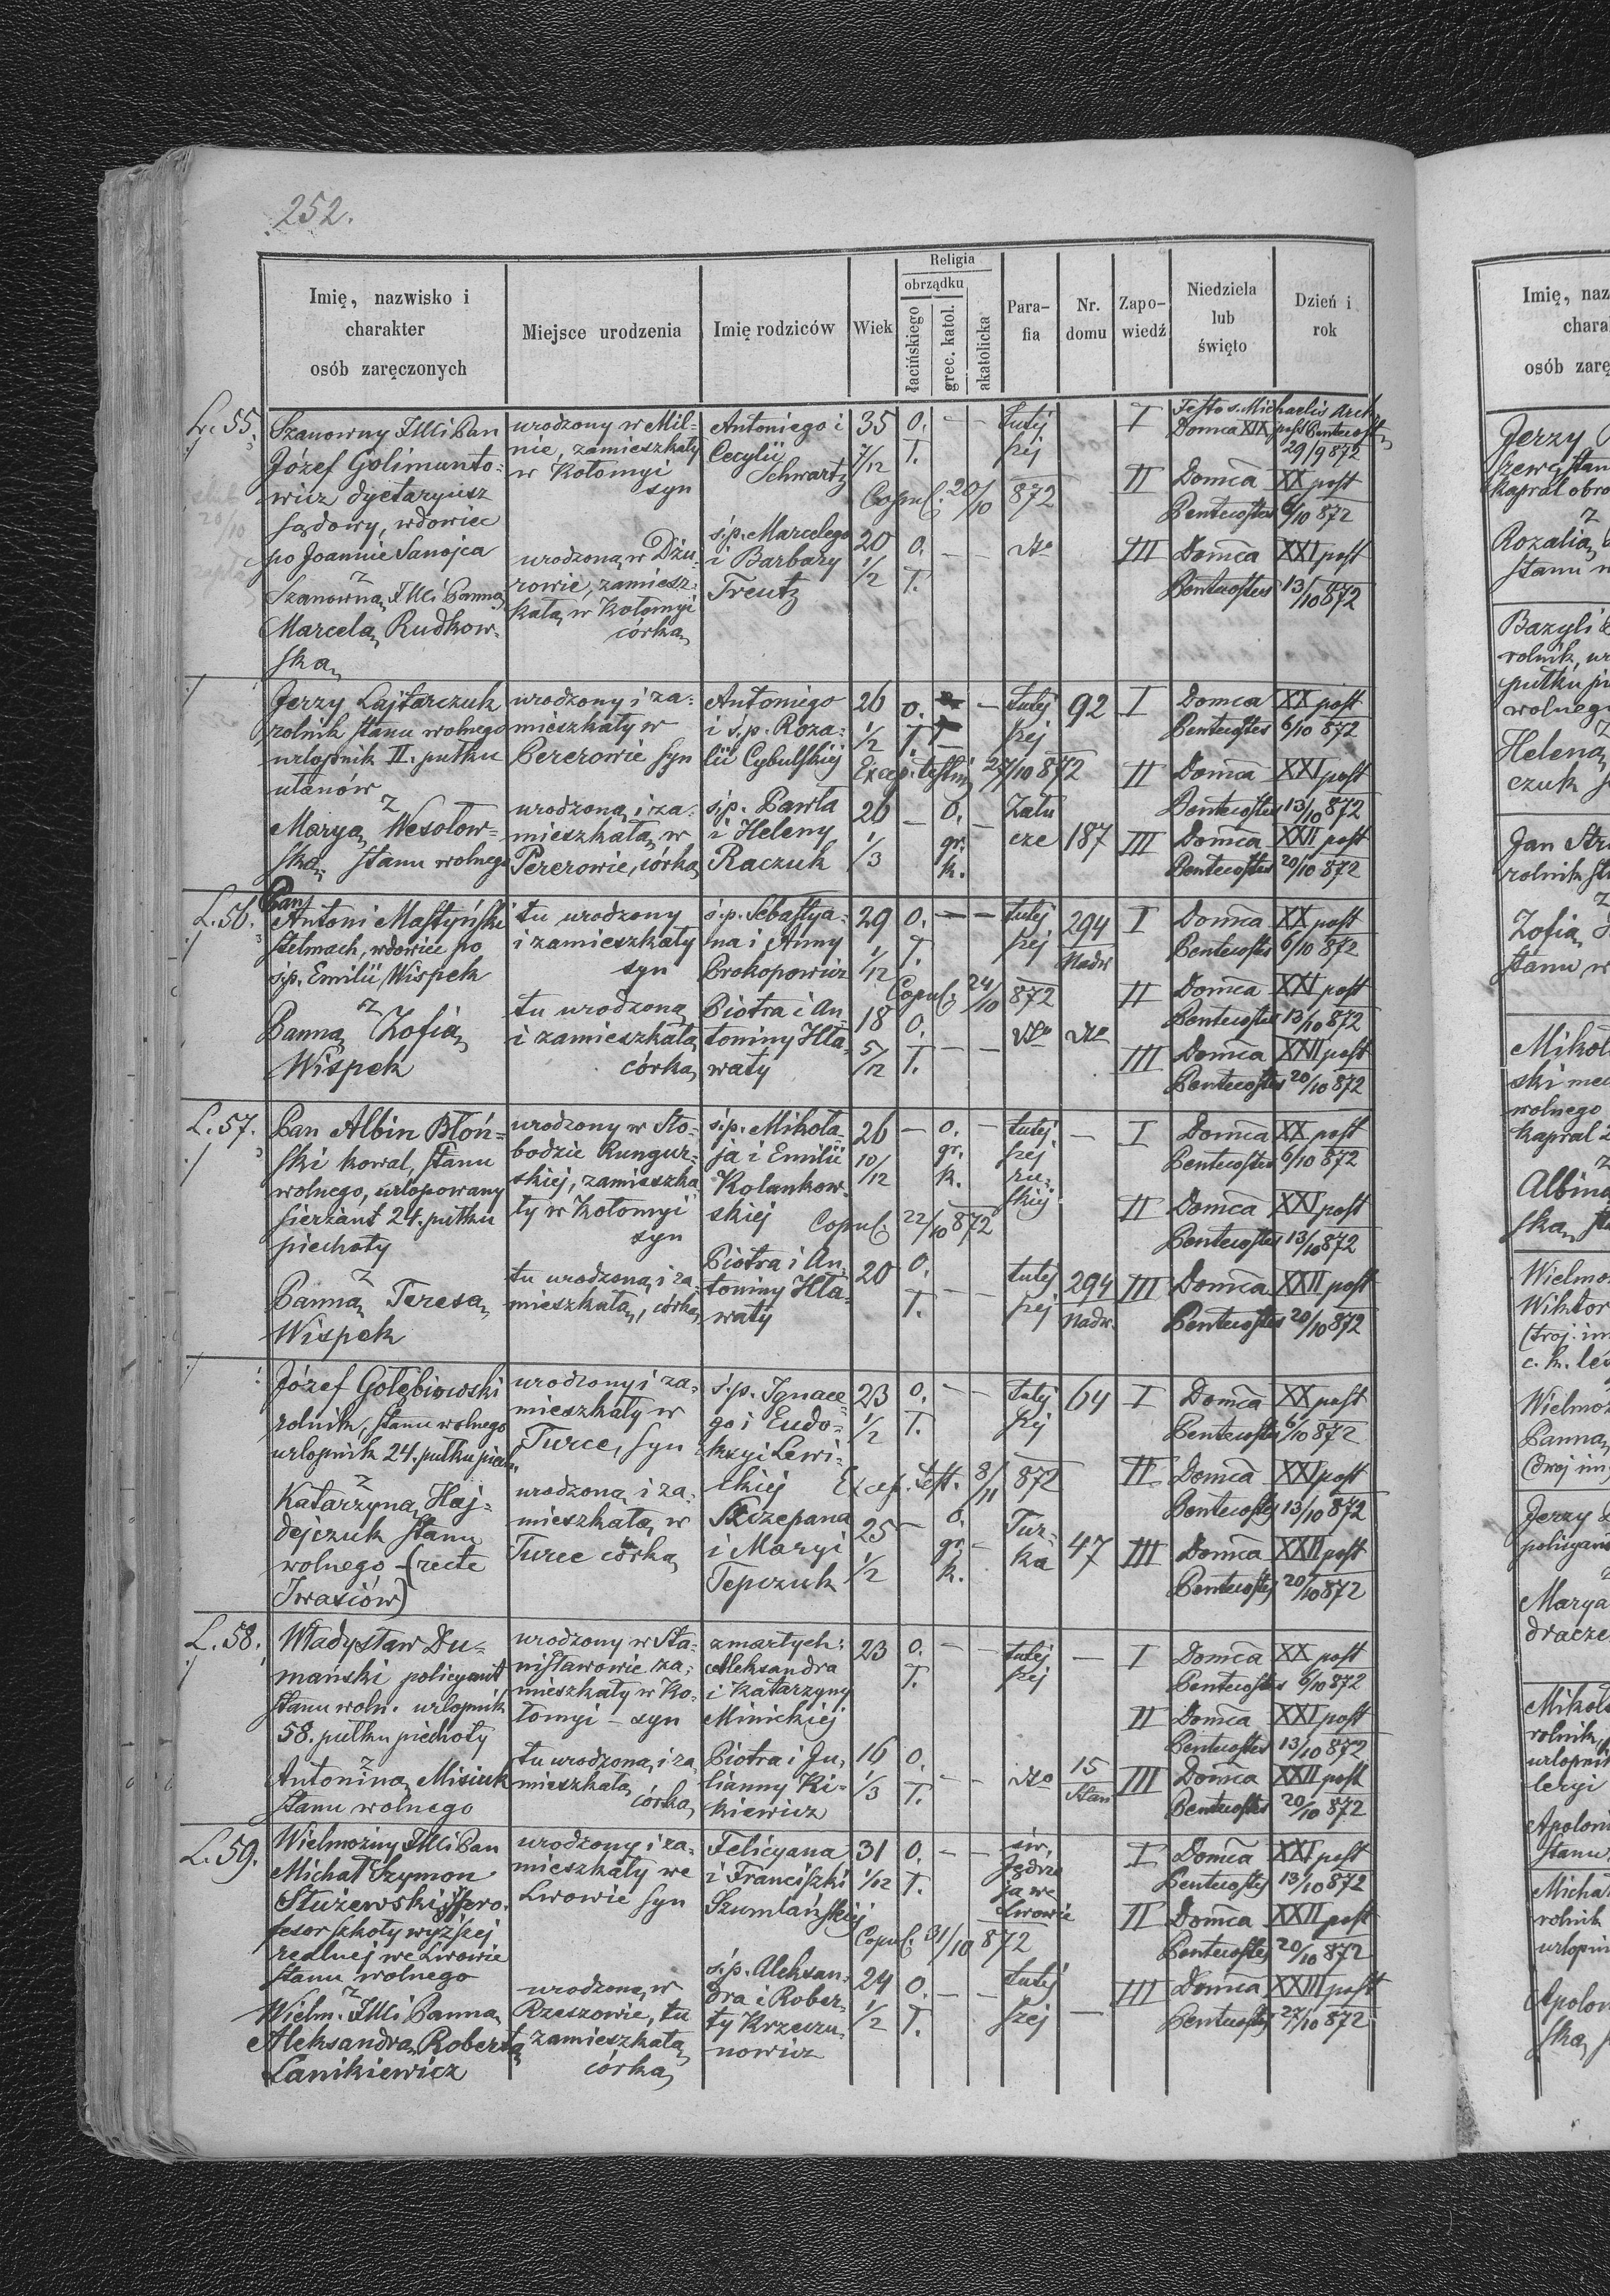 252.
Imię, nazwisko i
charakter
osób zaręczonych
Miejsce urodzenia
Imię rodziców
Wiek
Religia
obrządku
łacińskiego
grec. katol.
akatolicka
Para-
fia
Nr.
domu
Zapo-
wiedź
Niedziela
lub
święto
Dzień i
rok
L. 55.
Szanowny JMci Pan
Józef Golimunto-
wicz dyetaryusz
sądowy, wdowiec
po Joannie Sanojca
z
Szanowną JMci Panną
Marcelą Rudkow-
ską
urodzony w Mil-
nie, zamieszkały
w Kołomyi
syn
urodzoną w Dżu-
rowie, zamiesz-
kałą w Kołomyi
córką
Antoniego i
Cecylii
Schwartz
ś.p. Marcelego
i Barbary
Treutz
35
7/12
Copul. 20/10 872
20
1/2
o.
ł.
o.
ł.
tutej
szej
dto
I
Festo s. Michaelis Arch.
Domca XIX post Pentecost.
29/9 872
II Domca XX post
Pentecostes 6/10 872
III Domca XXI post
Pentecostes 13/10 872
Jerzy Lajtarczuk
rolnik stanu wolnego
urlopnik II. pułku
ułanów
z
Maryą Wesołow-
ską stanu wolnego
urodzony i za-
mieszkały w
Pererowie syn
urodzoną i za-
mieszkałą w
Pererowie, córką
Antoniego
i ś.p. Roza-
lii Cybulskiej
ś.p. Pawła
i Heleny
Raczuk
26
1/2
Excep. testim. 27/10 872
26
1/3
o.
ł.
o.
gr.
k.
tutej
szej
Zału
cze
92
187
I Domca XX post
Pentecostes 6/10 872
II Domca XXI post
Pentecostes 13/10 872
III Domca XXII post
Pentecostes 20/10 872
L. 56.
Pan
Antoni Mastyński
stelmach, wdowiec po
ś.p. Emilii Wispek
z
Panną Zofią
Wispek
tu urodzony
i zamieszkały
syn
tu urodzoną
i zamieszkałą
córką
ś.p. Sebastya-
na i Anny
Prokopowicz
Piotra i An-
toniny Hła-
waty
29
1/12
Copul. 24/10 872
18
5/12
o.
ł.
o.
ł.
tutej
szej
dto
294
Nadw
dto
I Domca XX post
Pentecostes 6/10 872
II Domca XXI post
Pentecostes 13/10 872
III Domca XXII post
Pentecostes 20/10 872
L. 57.
Pan Albin Błoń-
ski kowal, stanu
wolnego, urlopowany
sierżant 24. pułku
piechoty
z
Panną Teresą
Wispek
urodzony w Sło-
bodzie Rungur-
skiej, zamieszka
ły w Kołomyi
syn
tu urodzoną i za-
mieszkałą, córką
ś.p. Mikoła
ja i Emilii
Kolankow-
skiej
Piotra i An-
toniny Hła-
waty
26
10/12
Copul. 22/10 872
20
o.
gr.
k.
o.
ł.
tutej
szej
ru-
skiej
tutej
szej
294
Nadw.
I Domca XX post
Pentecostes 6/10 872
II Domca XXI post
Pentecostes 13/10 872
III Domca XXII post
Pentecostes 20/10 872
Józef Gołębiowski
rolnik, stanu wolnego
urlopnik 24. pułku piech.
z
Katarzyną Haj-
dejczuk stanu
wolnego (recte
Iwasiów)
urodzony i za-
mieszkały w
Turce, syn
urodzoną i za-
mieszkałą w
Turce córką
ś.p. Ignace-
go i Eudo-
kzyi Lewi-
ckiej
Szczepana
i Maryi
Tepczuk
23
1/2
Excep. test. 8/11 872
25
1/2
o.
ł.
o.
gr.
k.
tutej
szej
Tur-
ka
64
47
I Domca XX post
Pentecostes 6/10 872
II Domca XXI post
Pentecostes 13/10 872
III Domca XXII post
Pentecostes 20/10 872
L. 58.
Władysław Du-
mański policyant
stanu woln. urlopnik
58. pułku piechoty
z
Antoniną Misiuk
stanu wolnego
urodzony w Sta-
nisławowie za-
mieszkały w Ko-
łomyi - syn
tu urodzoną i za
mieszkałą
córką
zmarłych:
Aleksandra
i Katarzyny
Minickiej
Piotra i Ju-
lianny Ki-
kiewicz
23
16
1/3
o.
ł.
o.
ł.
tutej
szej
dto
15
Stan
I Domca XX post
Pentecostes 6/10 872
II Domca XXI post
Pentecostes 13/10 872
III Domca XXII post
Pentecostes 20/10 872
L. 59.
Wielmożny JMci Pan
Michał Szymon
Służewski profe-
sor szkoły wyższej
realnej we Lwowie
stanu wolnego
z
Wielm. JMci Panną
Aleksandrą Robertą
Łanikiewicz
urodzony i za-
mieszkały we
Lwowie syn
urodzoną w
Rzeszowie, tu
zamieszkałą
córką
Felicyana
i Franciszki
Szumlańskiej
ś.p. Aleksan-
dra i Rober-
ty Krzeczu-
nowicz
31
1/12
Copul. 31/10 872
24
1/2
o.
ł.
o.
ł.
św.
Jędrze
ja we
Lwowie
tutej
szej
I Domca XXI post
Pentecostes 13/10 872
II Domca XXII post
Pentecostes 20/10 872
III Domca XXIII post
Pentecostes 27/10 872
Imię, naz
chara
osób zarę
Jerzy
Rozalia
stanu
Bazyli
rolnik
pułku
wolnego
Helena
czuk
Jan
rolnik
z
Zofią
stanu w
Mikoł
ski
wolnego
kapral
z
Albiną
ska
Wielmo
Wiktor
Wielmoż
Panną
Jerzy
policyan
z
Marya
Mikoł
rolnik
urlopnik
Apolon
stanu
Micha
rolnik
urlopni
Apolon
ską